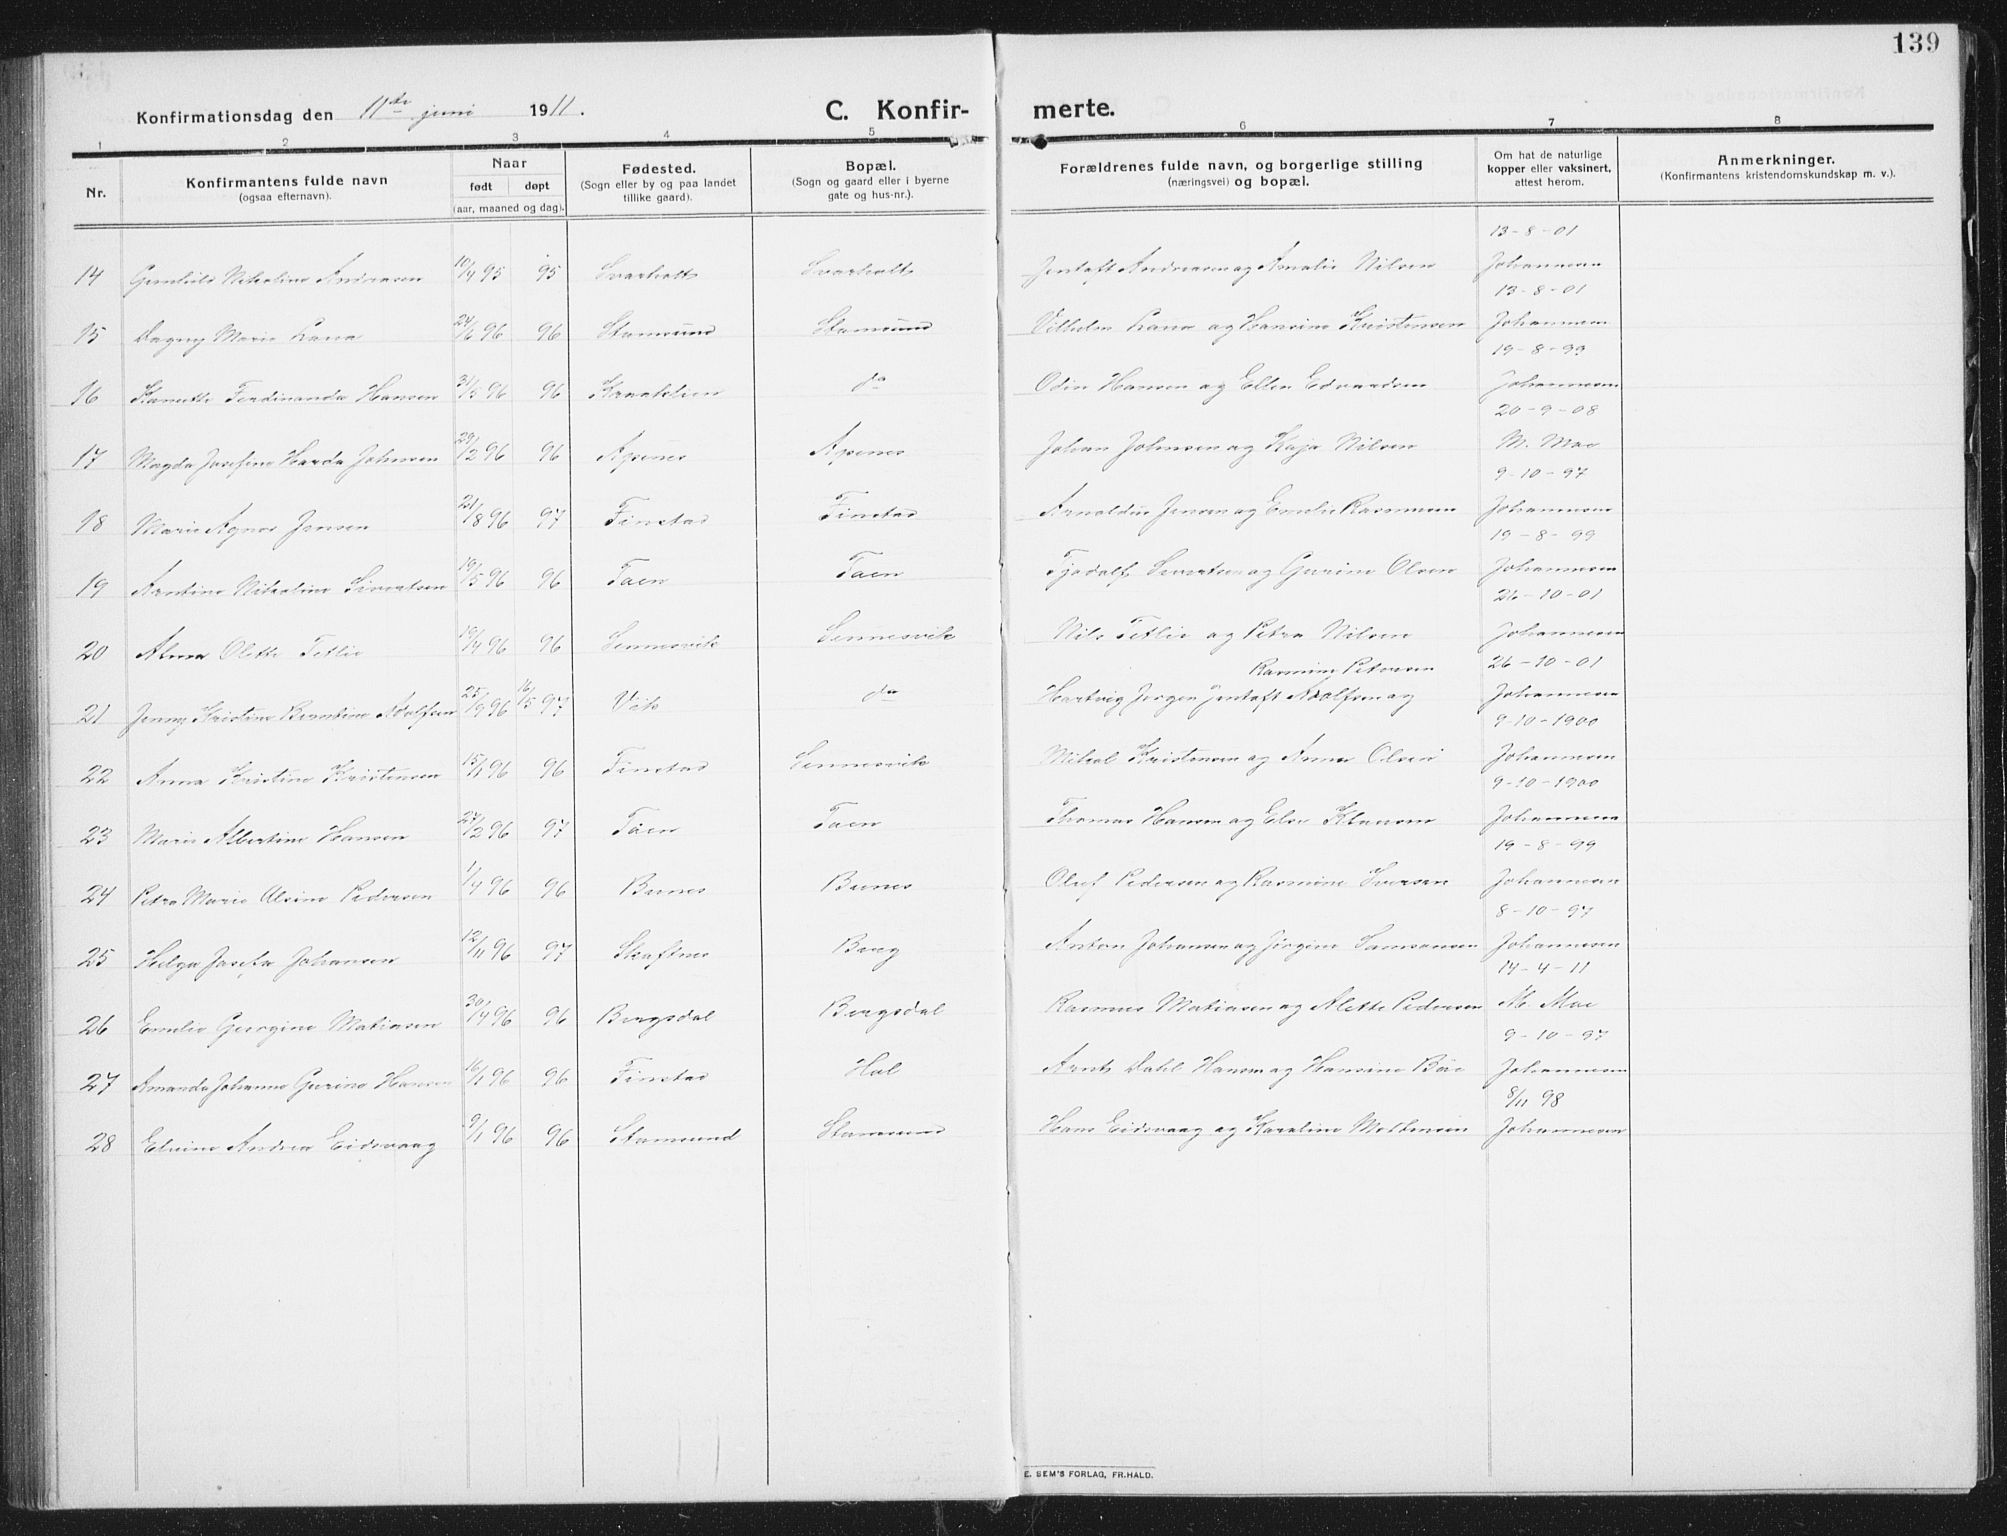 139
Konfirmationsdag den 11te juni 1911. C. Konfir- merte.
1 2 3 4 5 6 7 8
Nr. Konfirmantens fulde navn (ogsaa efternavn). Naar født døpt (aar, maaned og dag). Fødested. (Sogn eller by og paa landet tillike gaard). Bopæl. (Sogn og gaard eller i byerne gate og hus-nr.). Forældrenes fulde navn, og borgerlige stilling (næringsvei) og bopæl. Om hat de naturlige kopper eller vaksinert, attest herom. Anmerkninger. (Konfirmantens kristendomskundskap m. v.).
13-8-01
14 Gunhild Nikoline Andreasen 10/4 95 95 Svarholt Svarholt Jentoft Andreasen og Amalie Nilsen Johannesen
13-8-01
15 Dagny Marie Lana 24/6 96 96 Stamsund Stamsund Vilhelm Lana og Hansine Kristensen Johannesen
19-8-99
16 Kanutte Ferdinanda Hansen 31/5 96 96 Kraaklien do Odin Hansen og Ellen Edvardsen Johannesen
20-9-08
17 Magda Josefine Harda Johnsen 29/2 96 96 Apenes Apenes Johan Johnsen og Kaja Nilsen M. Moe
9-10-97
18 Marie Agnes Jensen 21/8 96 97 Finstad Finstad Arnoldus Jensen og Emelie Rasmusen Johannesen
19-8-99
19 Arntine Nikoline Sivertsen 19/5 96 96 Taen Taen Tjodolf Sivertsen og Gurine Olsen Johannesen
26-10-01
20 Alma Olette Tetlie 19/4 96 96 Sennesvik Sennesvik Nils Tetlie og Petra Nilsen Johannesen
Rasmine Petersen 26-10-01
21 Jenny Kristine Berntine Adolfsen 25/9 96 16/5 97 Vik do Hartvig Jørgen Jentoft Adolfsen og Johannesen
9-10-1900
22 Anna Kristine Kristensen 15/1 96 96 Finstad Sennesvik Mikal Kristensen og Anna Olsen Johannesen
9-10-1900
23 Marie Albertine Hansen 27/2 96 97 Taen Taen Thomas Hansen og Else Klausen Johannesen
19-8-99
24 Petra Marie Alsine Pedersen 1/4 96 96 Brenes Brenes Oluf Pedersen og Rasmine Iversen Johannesen
8-10-97
25 Helga Josefa Johansen 12/11 96 97 Skaftnes Borg Anton Johansen og Jørgine Samsonsen Johannesen
14-4-11
26 Emelie Georgine Matiasen 30/4 96 96 Borgsdal Borgsdal Rasmus Matiasen og Alette Pedersen M. Moe
9-10-97
27 Amanda Johanna Gurine Hansen 16/1 96 96 Finstad Hol Arnt Dahl Hansen og Hansine Böe Johannesen
8/11 98
28 Elvine Andrea Eidsvaag 9/1 96 96 Stamsund Stamsund Hans Eidsvaag og Karoline Mortensen Johannesen
E. SEM'S FORLAG, FR.HALD.